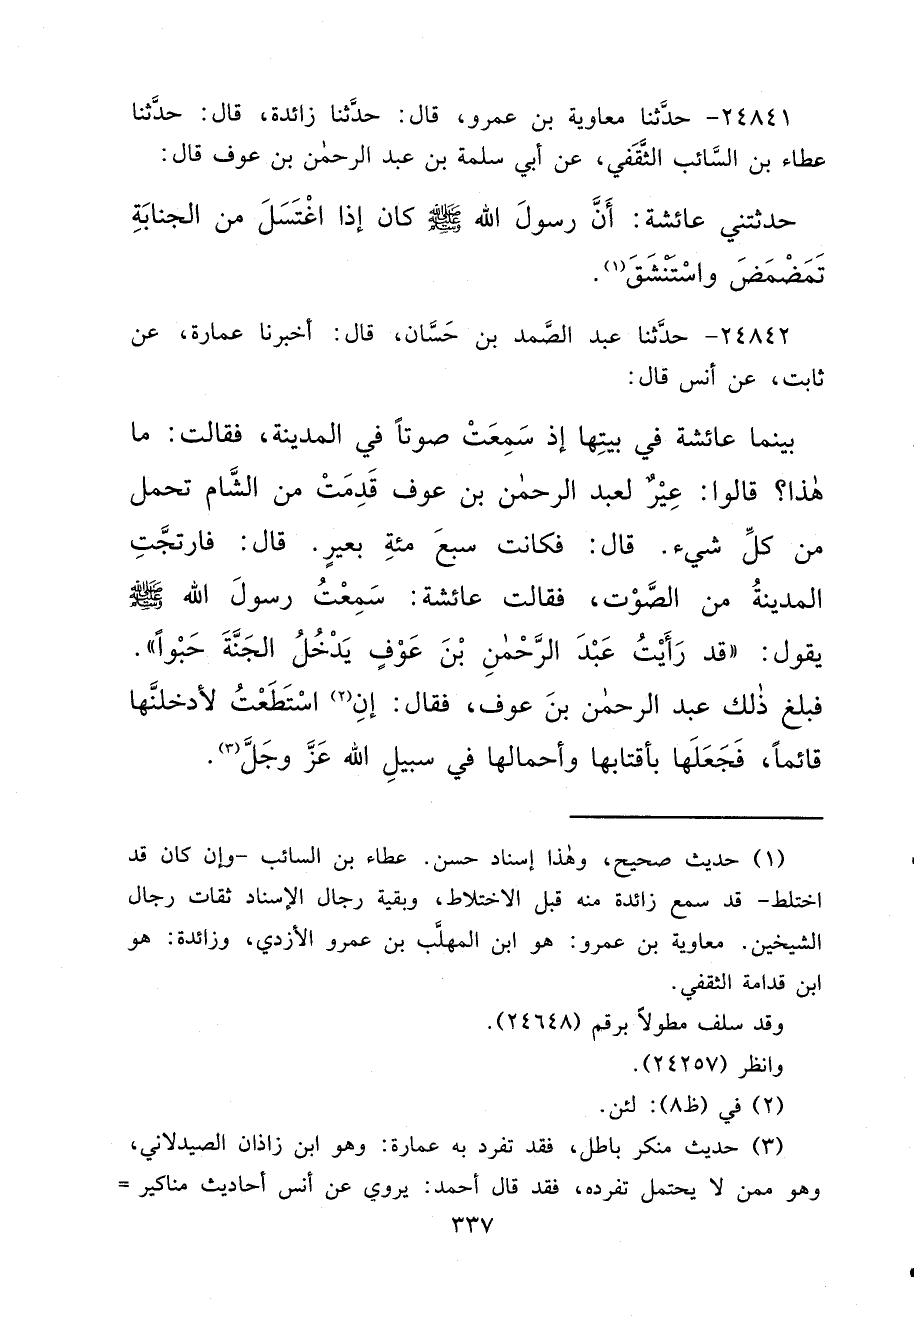 ٢٤٨٤١- حدَّثنا معاوية بن عمرو، قال: حدَّثنا زائدة، قال: حدَّثنا
عطاء بن السَّائب الثَّقَفي، عن أبي سلمة بن عبد الرحمٰن بن عوف قال:
حدثتني عائشة: أَنَّ رسولَ الله ﷺ كان إذا اغْتَسَلَ من الجنابَةِ
تَمَضْمَضَ واسْتَنْشَقَ(١).
٢٤٨٤٢- حدَّثنا عبد الصَّمد بن حَسَّان، قال: أخبرنا عمارة، عن
ثابت، عن أنس قال:
بينما عائشة في بيتِها إذ سَمِعَتْ صوتاً في المدينة، فقالت: ما
هٰذا؟ قالوا: عِيْرٌ لعبد الرحمٰن بن عوف قَدِمَتْ من الشَّام تحمل
من كلِّ شيء. قال: فكانت سبعَ مئةِ بعيرٍ. قال: فارتجَّتِ
المدينةُ من الصَّوْت، فقالت عائشة: سَمِعْتُ رسولَ الله ﷺ
يقول: «قد رَأَيْتُ عَبْدَ الرَّحْمٰنِ بْنَ عَوْفٍ يَدْخُلُ الجَنَّةَ حَبْواً».
فبلغ ذٰلك عبد الرحمٰن بنَ عوف، فقال: إنِ(٢) اسْتَطَعْتُ لأدخلنَّها
قائماً، فَجَعَلَها بأقتابها وأحمالها في سبيلِ الله عَزَّ وجَلَّ(٣).
(١) حديث صحيح، وهٰذا إسناد حسن. عطاء بن السائب -وإن كان قد
اختلط- قد سمع زائدة منه قبل الاختلاط، وبقية رجال الإسناد ثقات رجال
الشيخين. معاوية بن عمرو: هو ابن المهلَّب بن عمرو الأزدي، وزائدة: هو
ابن قدامة الثقفي.
وقد سلف مطولاً برقم (٢٤٦٤٨).
وانظر (٢٤٢٥٧).
(٢) في (ظ٨): لئن.
(٣) حديث منكر باطل، فقد تفرد به عمارة: وهو ابن زاذان الصيدلاني،
وهو ممن لا يحتمل تفرده، فقد قال أحمد: يروي عن أنس أحاديث مناكير =
٣٣٧